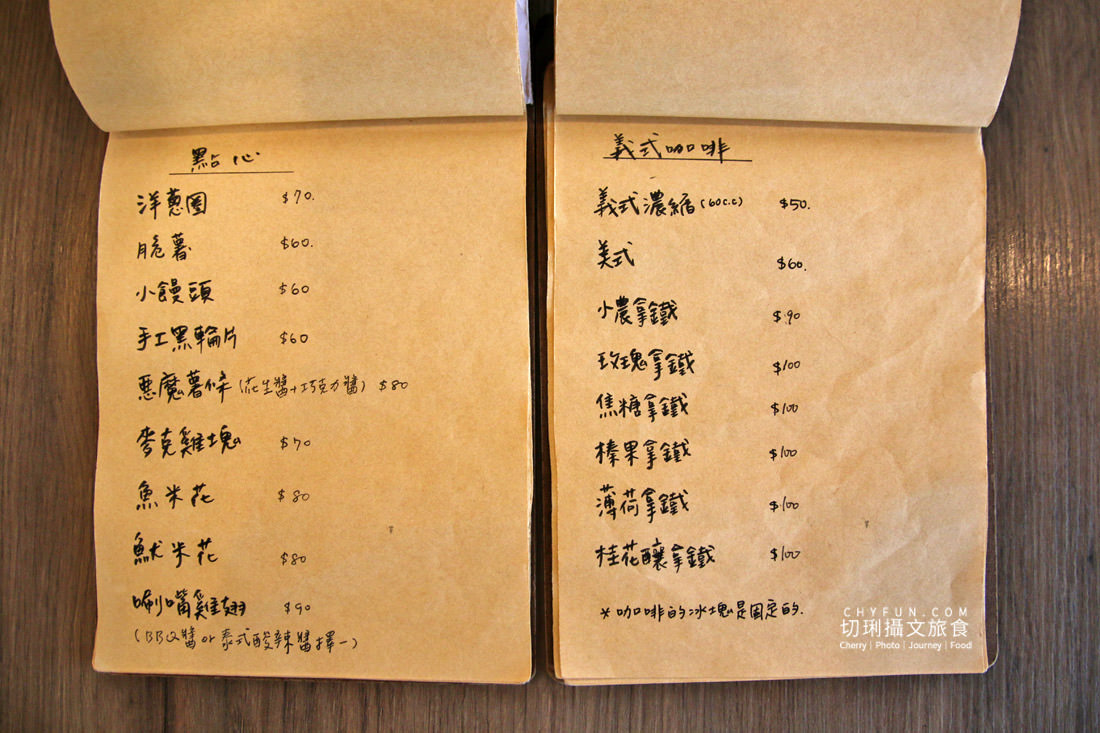 點心
洋蔥圈 $70.
脆薯 $60.
小饅頭 $60
手工黑輪片 $60
惡魔薯條(花生醬+巧克力醬) $80
麥克雞塊 $70
魚米花 $80
魷米花 $80
唰嘴雞翅 $90
(BBQ醬 or 泰式酸辣醬擇一)
義式咖啡
義式濃縮(60c.c) $50.
美式 $60.
小農拿鐵 $90
玫瑰拿鐵 $100
焦糖拿鐵 $100
榛果拿鐵 $100
薄荷拿鐵 $100
桂花釀拿鐵 $100
*咖啡的冰塊是固定的.
CHYFUN.COM
切琍攝文旅食
Cherry | Photo | Journey | Food